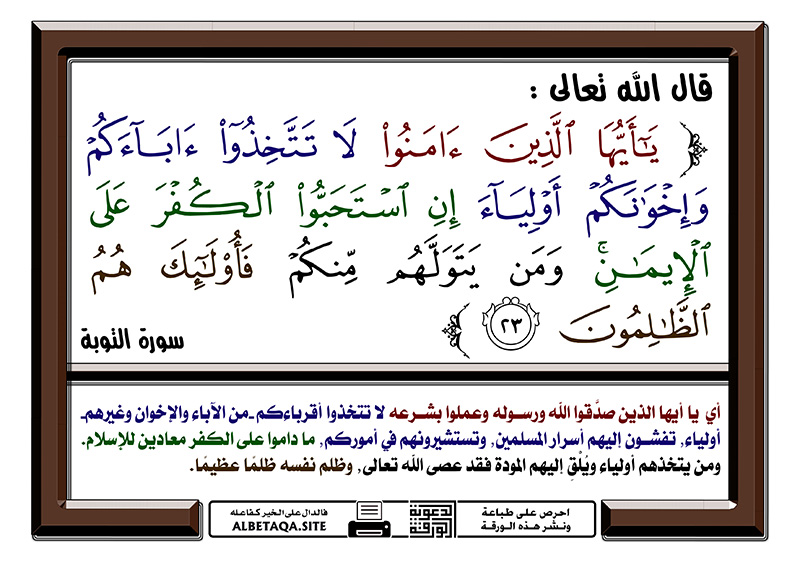 قال الله تعالى :
﴿ يَٰٓأَيُّهَا ٱلَّذِينَ ءَامَنُوا۟ لَا تَتَّخِذُوٓا۟ ءَابَآءَكُمْ
وَإِخْوَٰنَكُمْ أَوْلِيَآءَ إِنِ ٱسْتَحَبُّوا۟ ٱلْكُفْرَ عَلَى
ٱلْإِيمَٰنِ ۚ وَمَن يَتَوَلَّهُم مِّنكُمْ فَأُو۟لَٰٓئِكَ هُمُ
ٱلظَّٰلِمُونَ ٢٣ ﴾ سورة التوبة
أي يا أيها الذين صدَّقوا الله ورسوله وعملوا بشرعه لا تتخذوا أقرباءكم ـمن الآباء والإخوان وغيرهمـ
أولياء, تفشون إليهم أسرار المسلمين, وتستشيرونهم في أموركم, ما داموا على الكفر معادين للإسلام.
ومن يتخذهم أولياء ويُلْقِ إليهم المودة فقد عصى الله تعالى, وظلم نفسه ظلمًا عظيمًا.
احرص على طباعة
ونشر هذه الورقة
الدعوية
الورقة
فالدال على الخير كفاعله
ALBETAQA.SITE